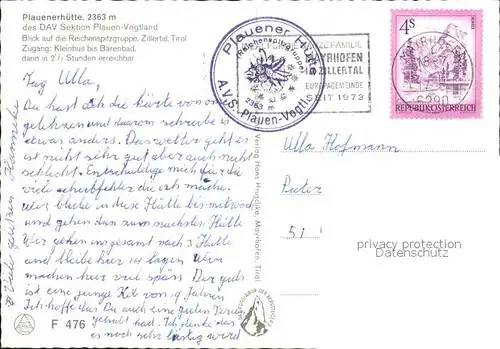 Plauenerhütte, 2363 m
des DAV Sektion Plauen-Vogtland
Blick auf die Reichenspitzgruppe, Zillertal, Tirol
Zugang: Kleinbus bis Bärenbad,
dann in 2½ Stunden erreichbar
Plauener Hütte
(Reichenspitzgruppe)
2363 m
A.V.S. Plauen-Vogtl.
FAMILIE
MAYRHOFEN
ZILLERTAL
EUROPAGEMEINDE
SEIT 1973
4S
REPUBLIK ÖSTERREICH
6290
Tag Ulla,
Du hast die Karte von
gelehnen und daarom schreibe
etwas anders. Das wetter geht es
ist nicht sehr gut aber auch nicht
schlecht. Entschuldige mich für die
viele schreibfehler die ich mache.
Wir bleibe in diese Hütte bis mitwoch
und gehen dan zum nachsten Hütte
Wir gehen insgesamt nach 3 Hütte
und bleibe hier 14 tagen. Wir
machen hier viel spass. Der gids
ist eine junge Kerl von 19 Jahren
Ich hoffe das Du auch eine guten Ferien
gehabt hast. Ich denke das
es noch sehr lustig werd
Viele grüssen Hanneke
Ulla Hofmann
51
Verlag Hans Hruschka, Mayrhofen, Tirol
F 476
privacy protection
Datenschutz